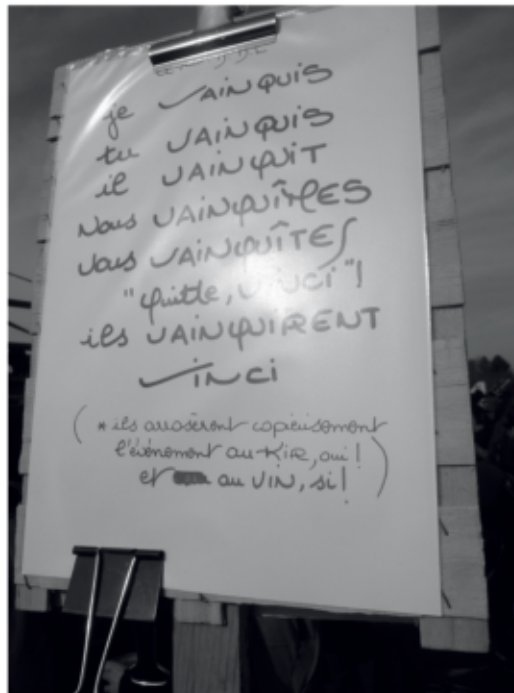 je VAINQUIS
tu VAINQUIS
il VAINQUIT
Nous VAINQUÎMES
Vous VAINQUÎTES
"quitte, Vinci"!
ils VAINQUIRENT
VINCI
(* ils arrosèrent copieusement
l'évènement au Kir, oui!
et au VIN, si!)